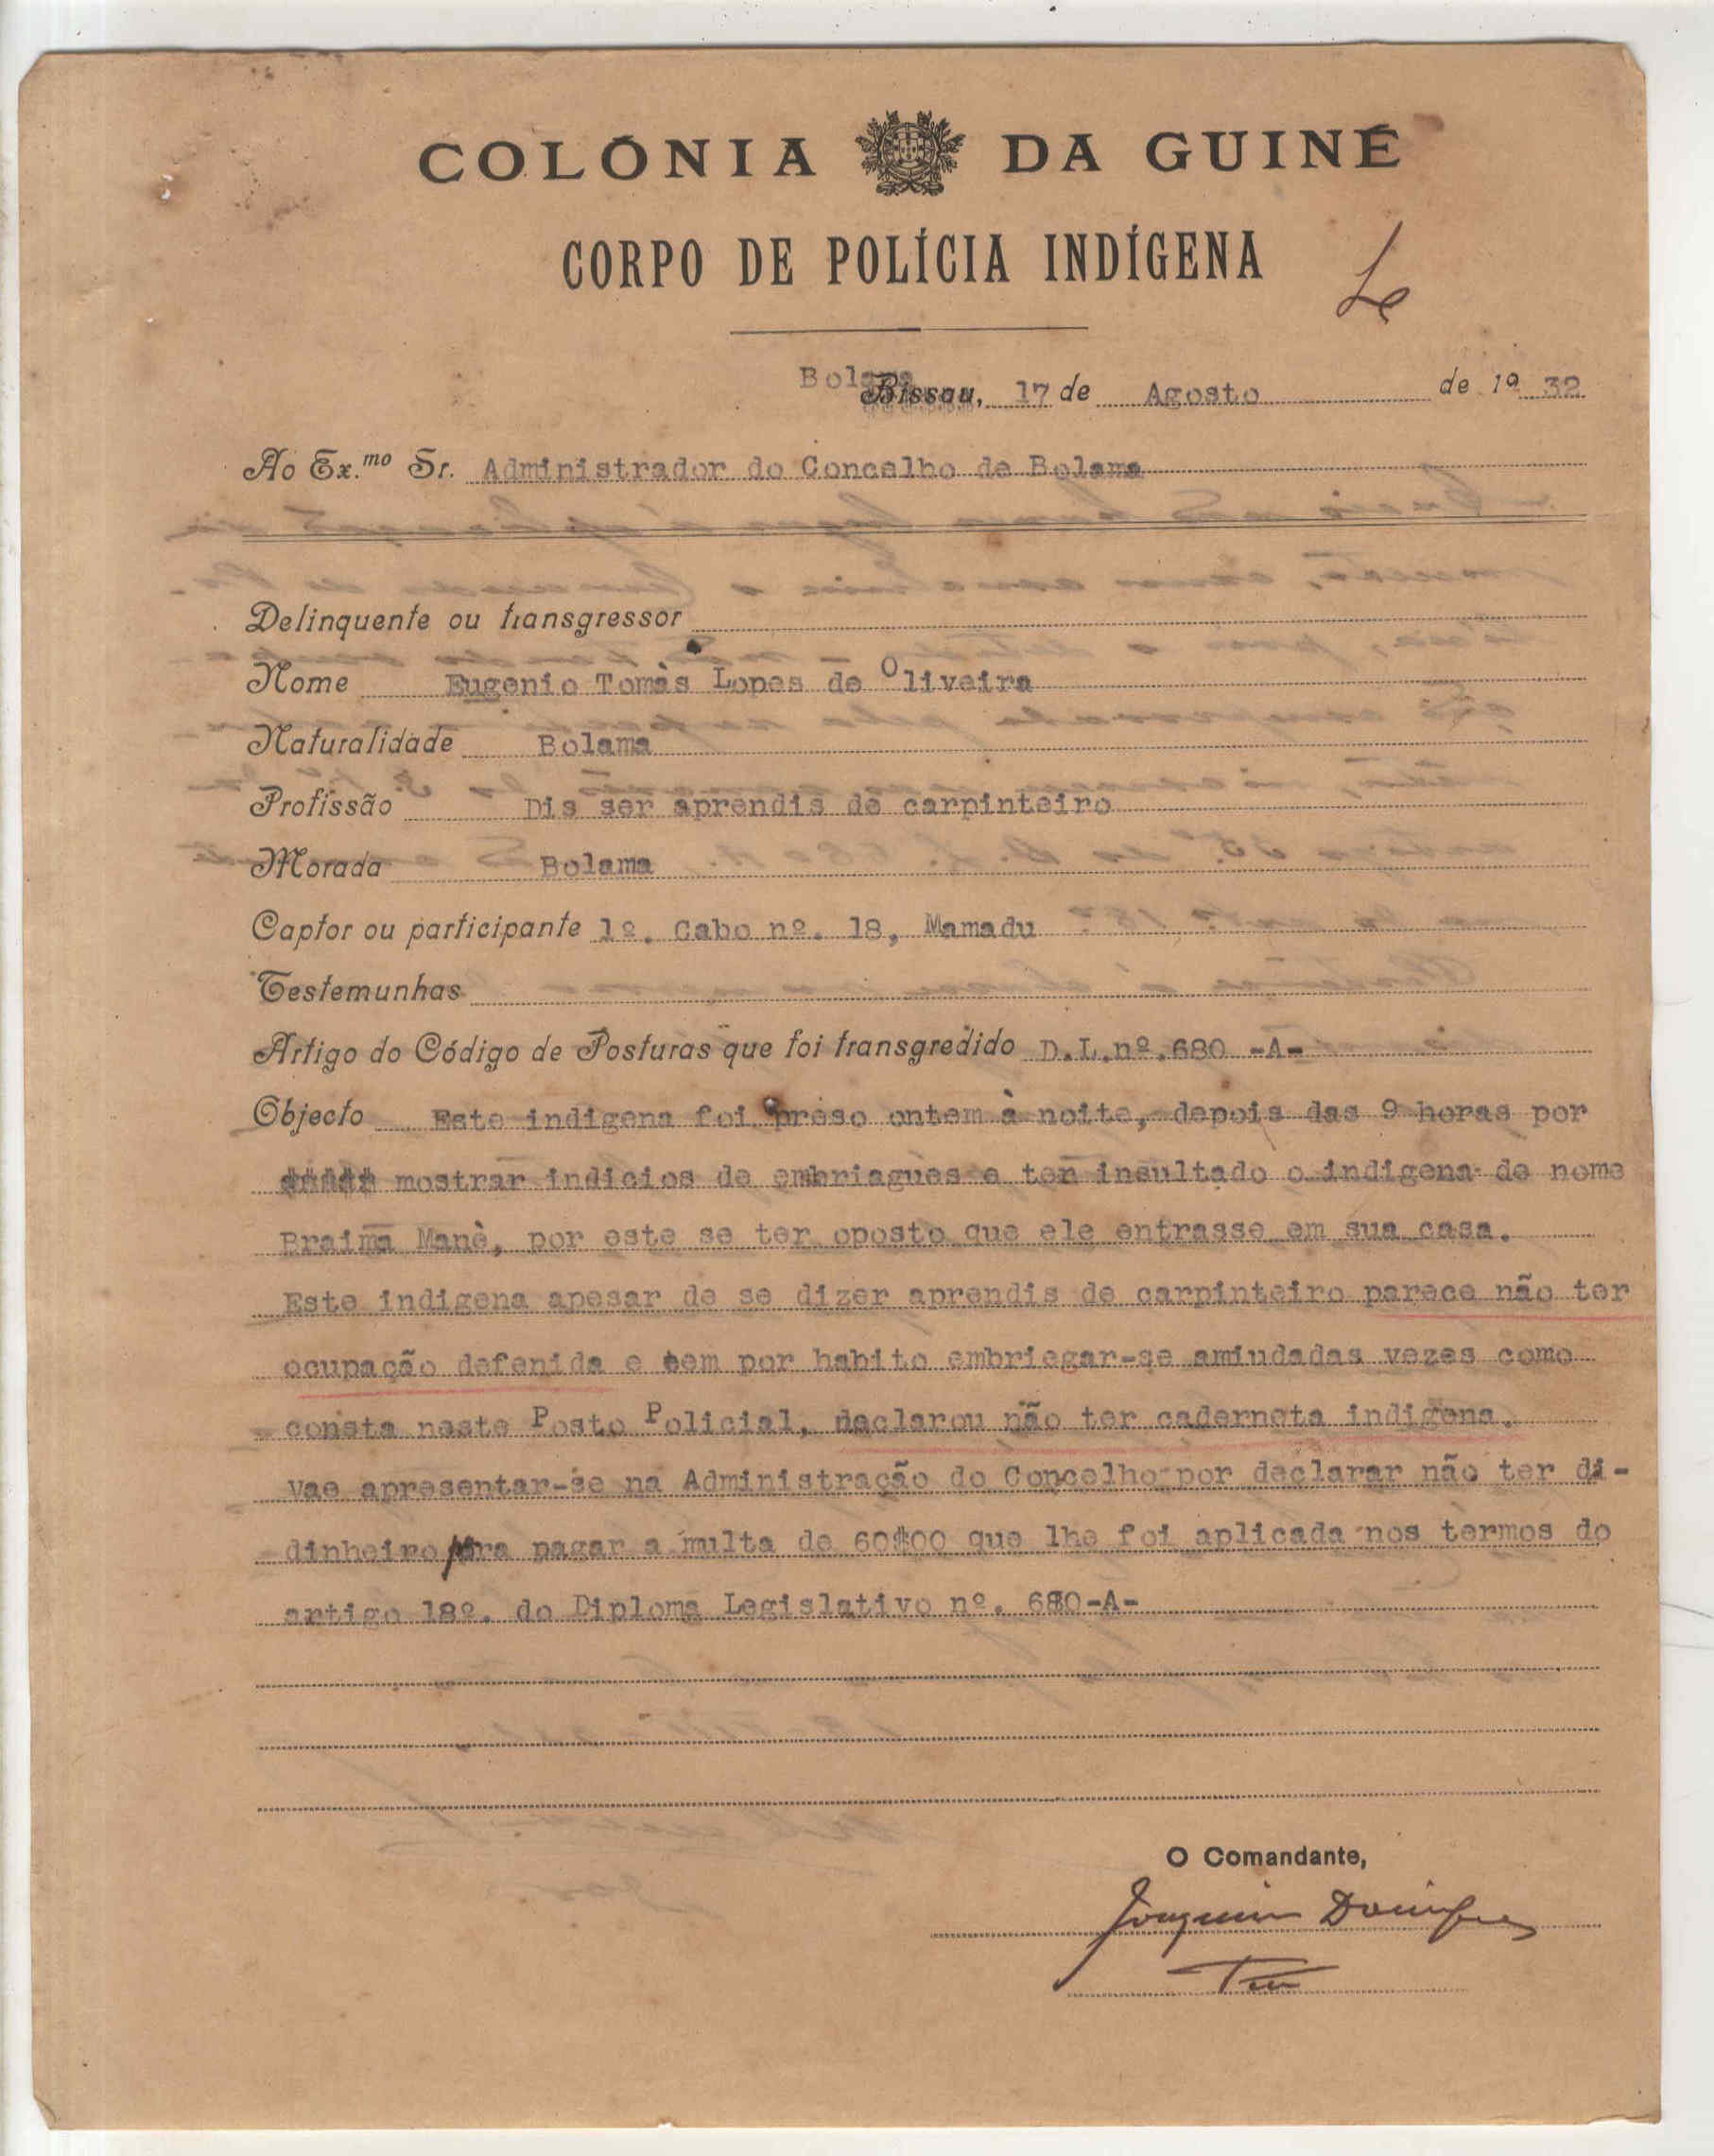 COLÓNIA DA GUINÉ
CORPO DE POLÍCIA INDÍGENA
Bolama Bissau, 17 de Agosto de 19 32
Ao Ex.mo Sr. Administrador do Concelho de Bolama
Delinquente ou transgressor
Nome Eugenio Tomàs Lopes de Oliveira
Naturalidade Bolama
Profissão Dis ser aprendis de carpinteiro
Morada Bolama
Captor ou participante 1º. Cabo nº. 18, Mamadu
Testemunhas
Artigo do Código de Posturas que foi transgredido D.L.nº.680 -A-
Objecto Este indigena foi prèso ontem à noite, depois das 9 horas por
mostrar indicios de embriagues e ter insultado o indigena de nome
Braima Manè, por este se ter oposto que ele entrasse em sua casa.
Este indigena apesar de se dizer aprendis de carpinteiro parece não ter
ocupação defenida e tem por habito embriegar-se amiudadas vezes como
consta neste Posto Policial, declarou não ter caderneta indigena.
Vae apresentar-se na Administração do Concelho por declarar não ter di-
dinheiro para pagar a multa de 60$00 que lhe foi aplicada nos térmos do
artigo 18º. do Diploma Legislativo nº. 680-A-
O Comandante,
Joaquim